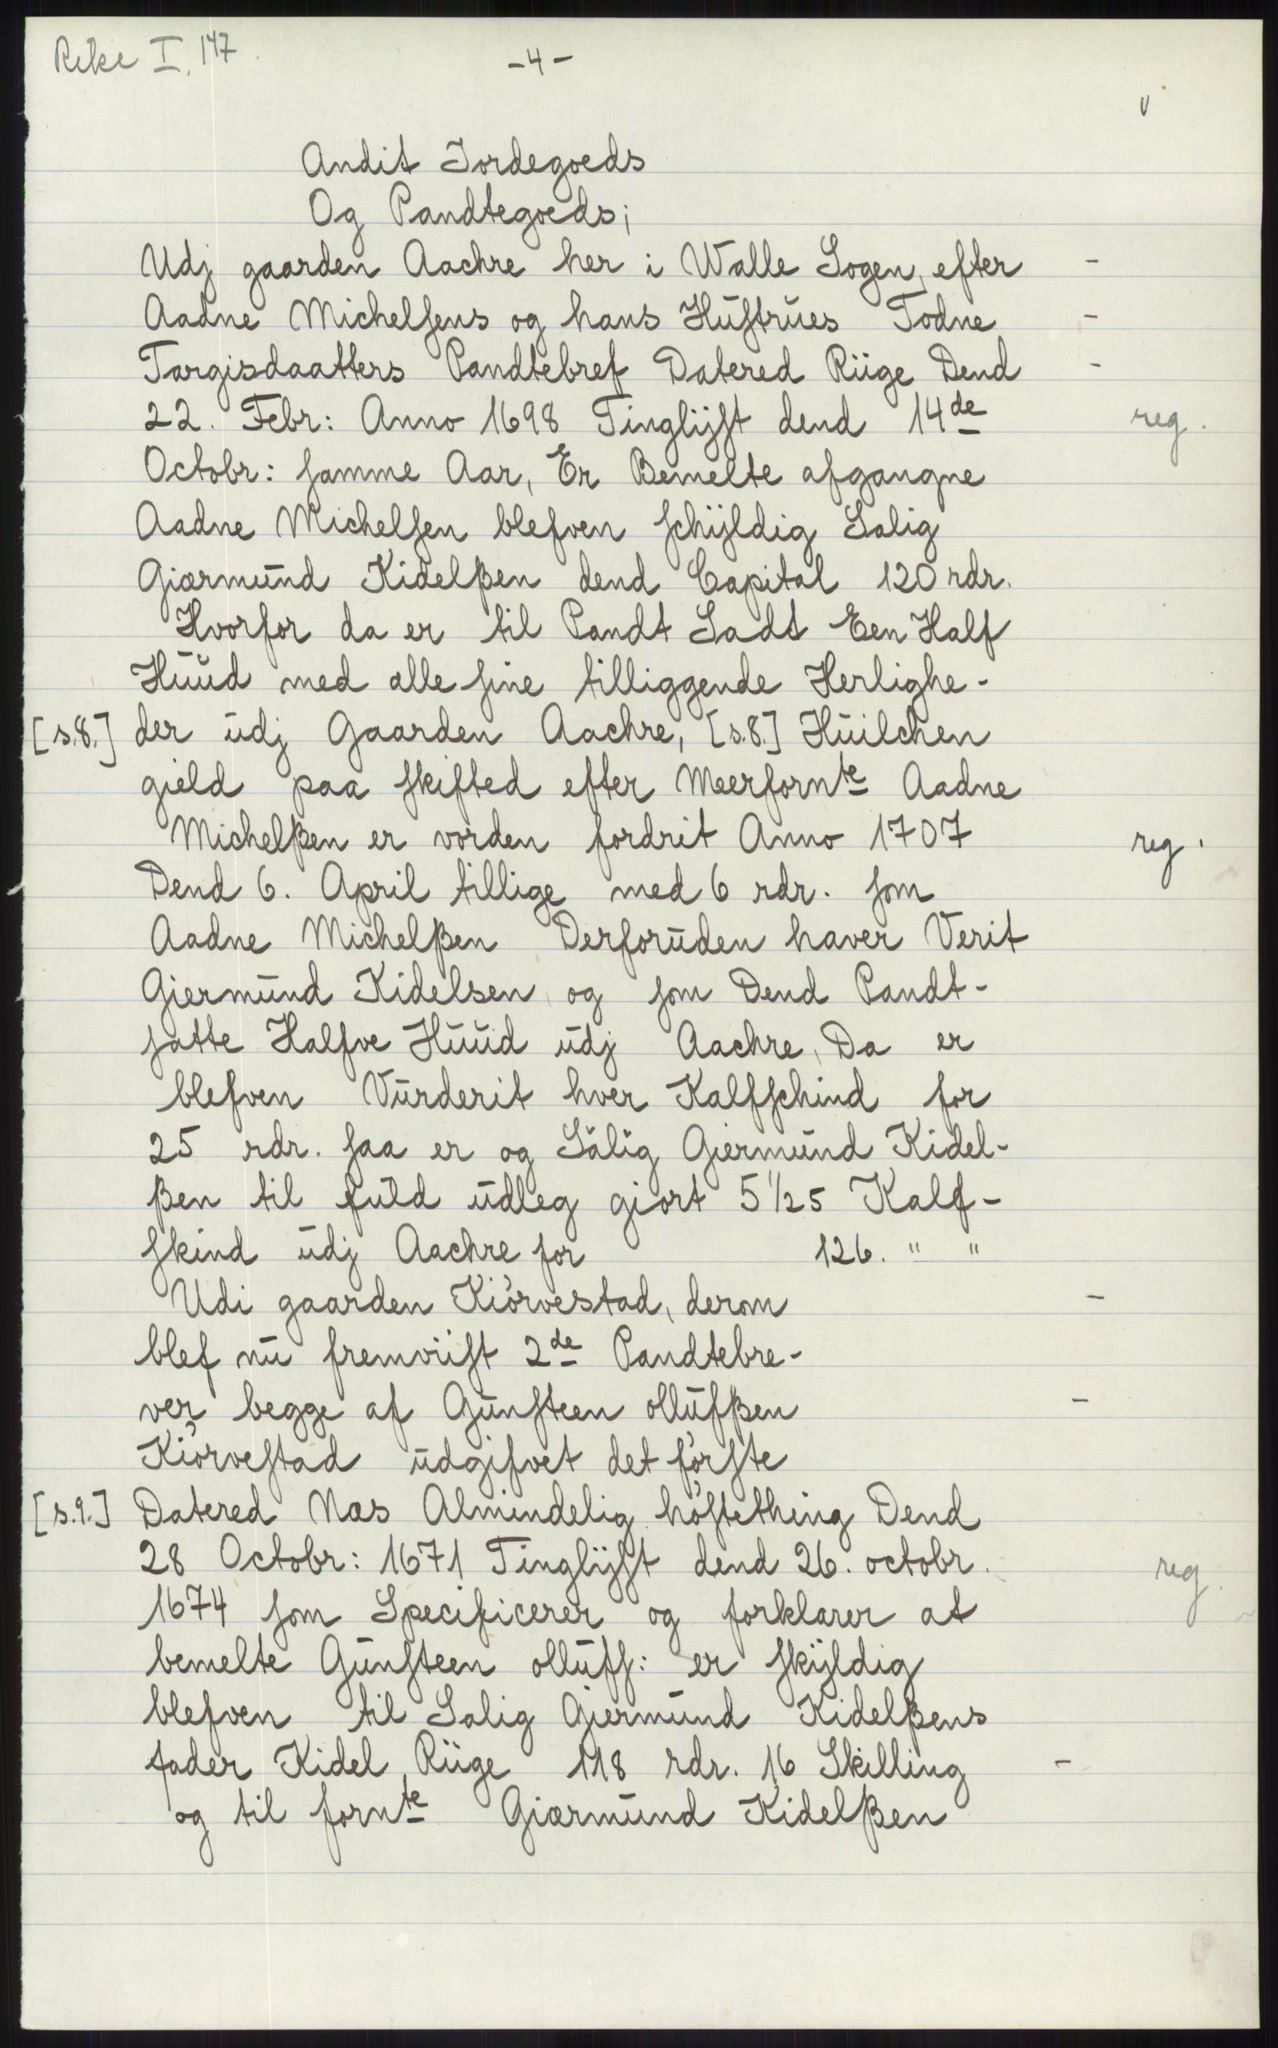 Rike I, 147.
-4-
Andit Jordegoeds
Og Pandtegoeds;
Udj gaarden Aachre her i Walle Sogen, efter -
Aadne Michelsens og hans Hustrues Todne -
Targisdaatters Pandtebref Datered Rüge Dend -
22. Febr: Anno 1698 Tinglÿst dend 14de reg.
Octobr: samme Aar, Er Bemelte afgangne
Aadne Michelsen blefven schÿldig Salig
Giærmund Kidelßen dend Capital 120 rdr.
Hvorfor da er til Pandt Sadt Een Half
Huud med alle sine tilliggende Herlighe-
[s.8.] der udj Gaarden Aachre, [s.8.] Huilchen
gield paa skifted efter Meerfornte Aadne
Michelßen er vorden fordrit Anno 1707 reg.
Dend 6. April tillige med 6 rdr. som
Aadne Michelßen Derforuden haver Verit
Giermund Kidelsen, og som Dend Pandt-
satte Halfve Huud udj Aachre, Da er
blefven Vurderit hver Kalfschind for
25 rdr. saa er og Sälig Giermund Kidel-
ßen til fuld udleg giort 5 1/25 Kalf-
skind udj Aachre for 126. " "
Udi gaarden Kiörvestad, derom -
blef nu fremviist 2de Pandtebre-
ver begge af Gunsteen ollufßen -
Kiörvestad udgifvet det förste
[s.9.] Datered Næs Almindelig höstething Dend
28 Octobr: 1671 Tinglÿst dend 26. octobr. reg.
1674 som Specificerer og forklarer at
bemelte Gunsteen olluffs: er skÿldig
blefven til Salig Giermund Kidelßens
fader Kidel Rüge 118 rdr. 16 Skilling -
og til fornte Giærmund Kidelßen